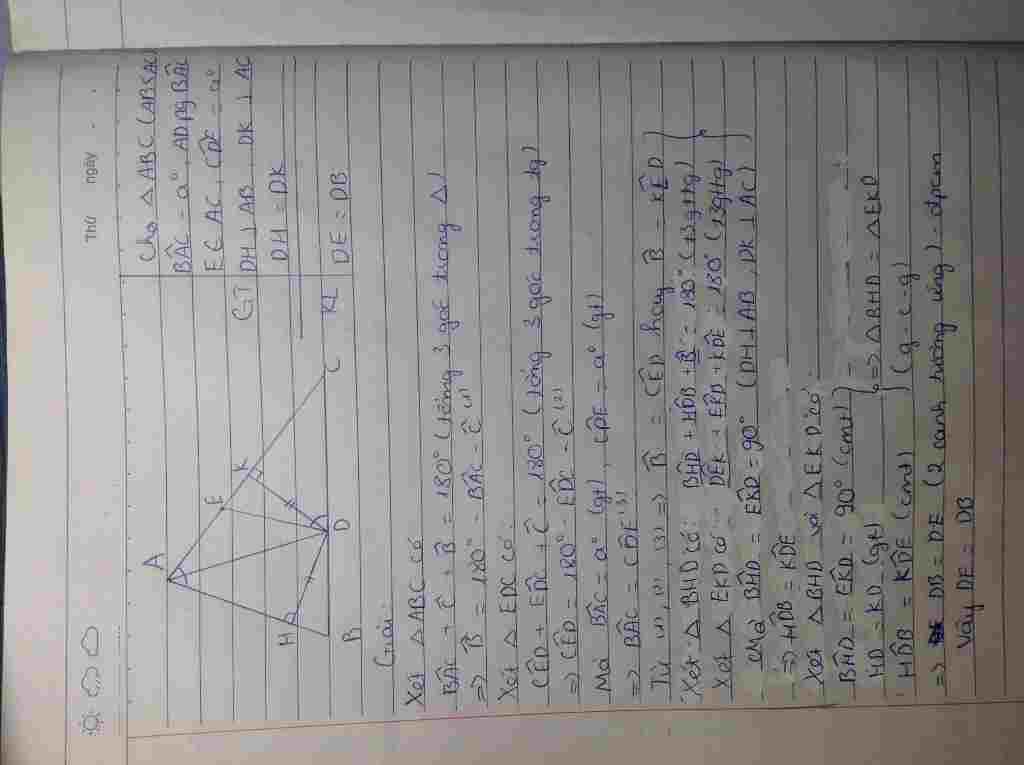 Thứ ngày
Cho △ABC (AB<AC)
BÂC = a°, AD pg BÂC
GT E ∈ AC, CD̂E = a°
DH ⊥ AB, DK ⊥ AC
DH = DK
KL DE = DB
A
E
K
H
B
D
C
Giải:
Xét △ABC có
BÂC + Ĉ + B̂ = 180° (tổng 3 góc trong △)
=> B̂ = 180° - BÂC - Ĉ (1)
Xét △EDC có:
CÊD + ED̂C + Ĉ = 180° (tổng 3 góc trong tg)
=> CÊD = 180° - ED̂C - Ĉ (2)
Mà BÂC = a° (gt), CD̂E = a° (gt)
=> BÂC = CD̂E (3)
Từ (1), (2), (3) => B̂ = CÊD hay B̂ = KÊD
Xét △BHD có: BĤD + HD̂B + B̂ = 180° (t3gttg)
Xét △EKD có: DÊK + EK̂D + KD̂E = 180° (t3gttg)
Mà BĤD = EK̂D = 90° (DH ⊥ AB, DK ⊥ AC)
=> HD̂B = KD̂E
Xét △BHD và △EKD có:
BĤD = EK̂D = 90° (cmt)
HD = KD (gt) => △BHD = △EKD
HD̂B = KD̂E (cmt) (g-c-g)
=> DB = DE (2 cạnh tương ứng) - đpcm
Vậy DE = DB